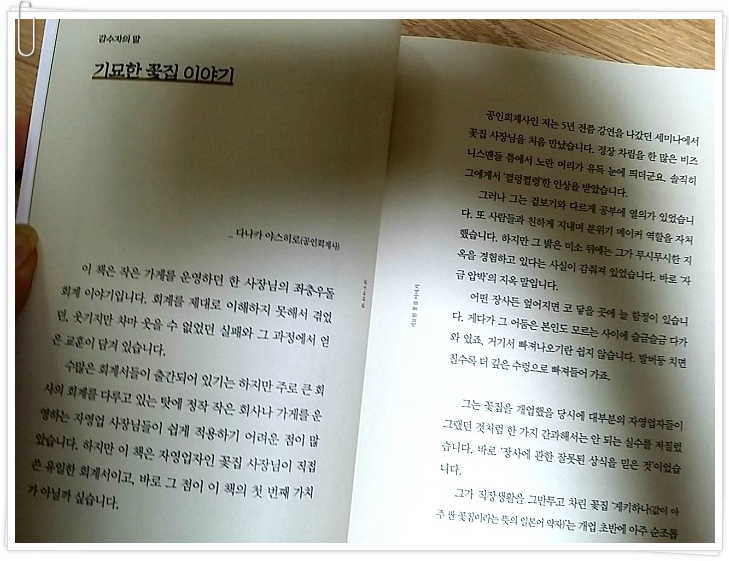 감수자의 말
기묘한 꽃집 이야기
_ 다나카 야스히로(공인회계사)
이 책은 작은 가게를 운영하던 한 사장님의 좌충우돌
회계 이야기입니다. 회계를 제대로 이해하지 못해서 겪었
던, 웃기지만 차마 웃을 수 없었던 실패와 그 과정에서 얻
은 교훈이 담겨 있습니다.
수많은 회계서들이 출간되어 있기는 하지만 주로 큰 회
사의 회계를 다루고 있는 탓에 정작 작은 회사나 가게를 운
영하는 자영업 사장님들이 쉽게 적용하기 어려운 점이 많
았습니다. 하지만 이 책은 자영업자인 꽃집 사장님이 직접
쓴 유일한 회계서이고, 바로 그 점이 이 책의 첫 번째 가치
가 아닐까 싶습니다.
기묘한 꽃집 이야기
공인회계사인 저는 5년 전쯤 강연을 나갔던 세미나에서
꽃집 사장님을 처음 만났습니다. 정장 차림을 한 많은 비즈
니스맨들 틈에서 노란 머리가 유독 눈에 띄더군요. 솔직히
그에게서 '껄렁껄렁'한 인상을 받았습니다.
그러나 그는 겉보기와 다르게 공부에 열의가 있었습니
다. 또 사람들과 친하게 지내며 분위기 메이커 역할을 자처
했습니다. 하지만 그 밝은 미소 뒤에는 그가 무시무시한 지
옥을 경험하고 있다는 사실이 감춰져 있었습니다. 바로 '자
금 압박'의 지옥 말입니다.
어떤 장사든 엎어지면 코 닿을 곳에 늘 함정이 있습니
다. 게다가 그 어둠은 본인도 모르는 사이에 슬금슬금 다가
와 있죠. 거기서 빠져나오기란 쉽지 않습니다. 발버둥 치면
칠수록 더 깊은 수렁으로 빠져들어 가죠.
그는 꽃집을 개업했을 당시에 대부분의 자영업자들이
그랬던 것처럼 한 가지 간과해서는 안 되는 실수를 저질렀
습니다. 바로 '장사에 관한 잘못된 상식을 믿은 것'이었습
니다.
그가 직장생활을 그만두고 차린 꽃집 '게키하나(값이 아
주 싼 꽃집이라는 뜻의 일본어 약자)'는 개업 초반에 아주 순조롭